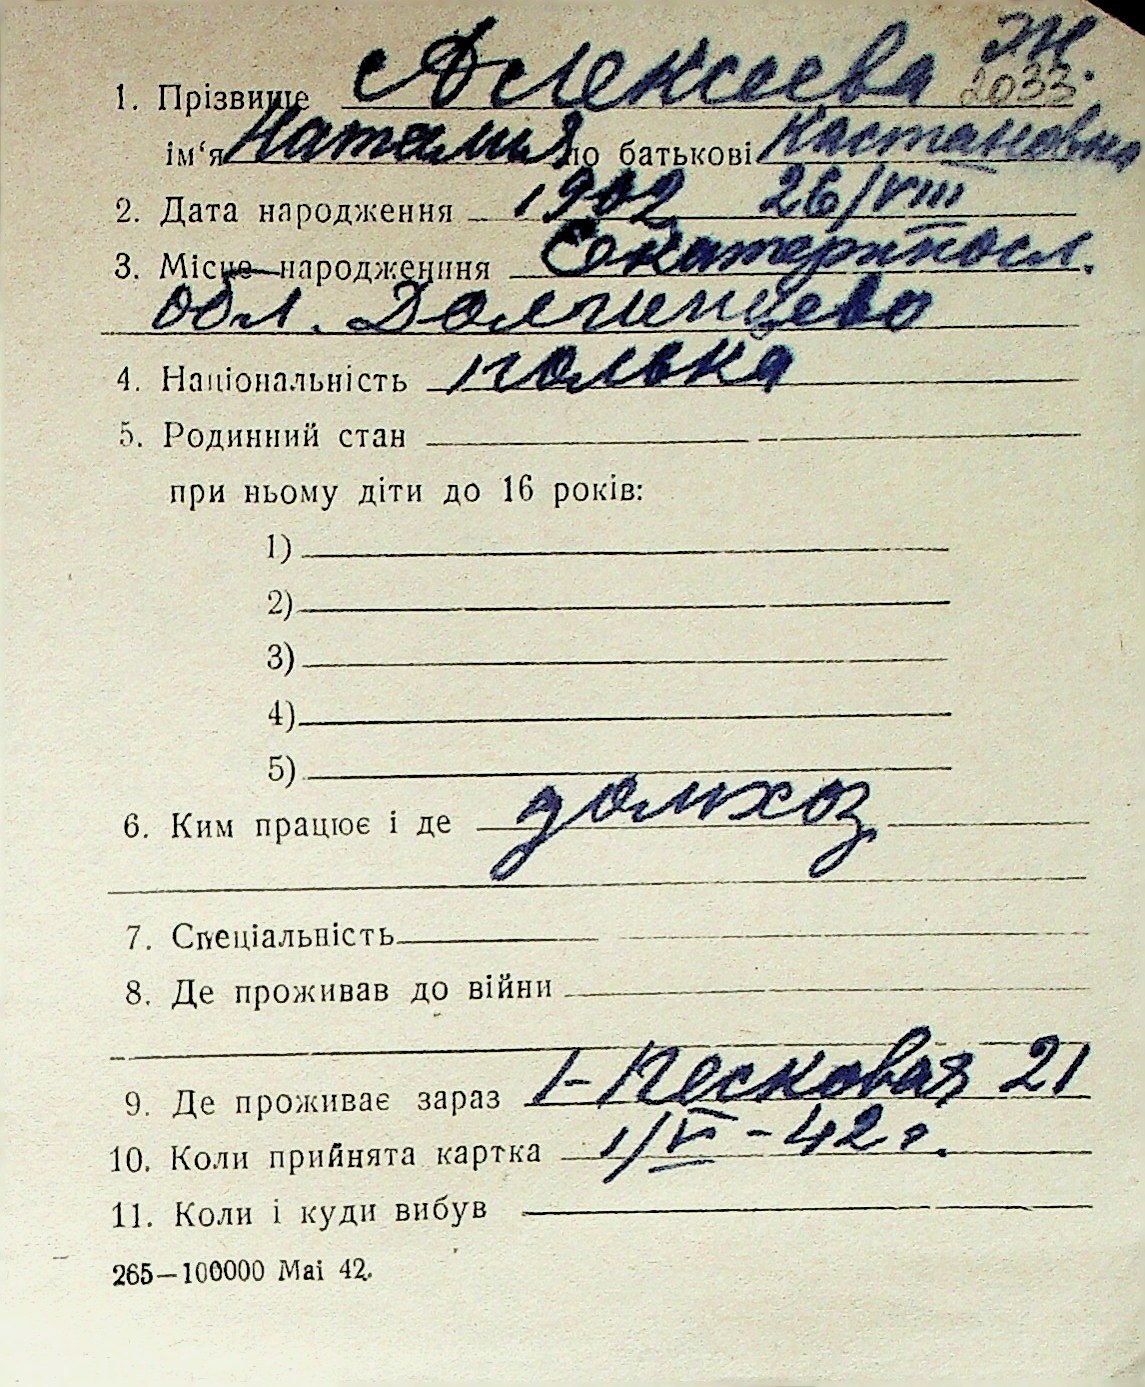 Ж.
1. Прізвище Алексеева 2033
ім'я Наталия по батькові Кастановна
2. Дата народження 1902 26/VIII
3. Місце народженння Екатериносл.
обл. Долгинцево
4. Національність полька
5. Родинний стан
при ньому діти до 16 років:
1)
2)
3)
4)
5)
6. Ким працює і де домхоз
7. Спеціальність
8. Де проживав до війни
9. Де проживає зараз 1-Песковая 21
10. Коли прийнята картка 1/VI-42 г.
11. Коли і куди вибув
265—100000 Mai 42.